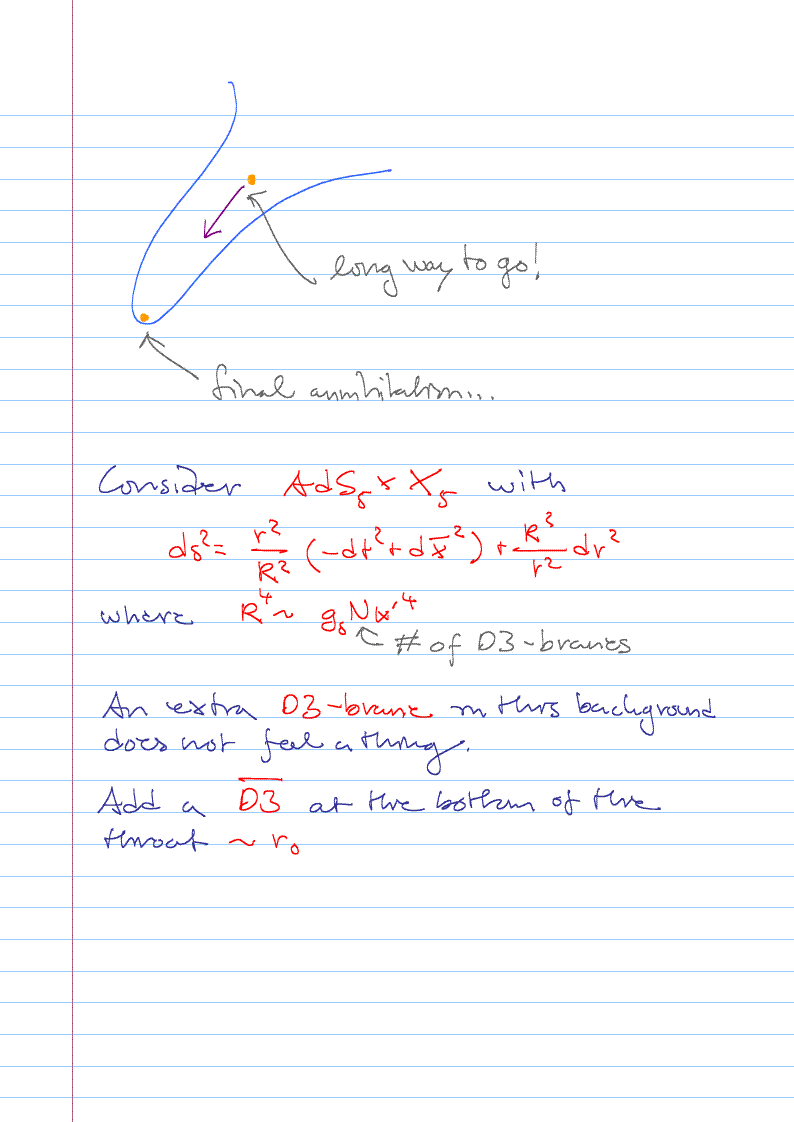 long way to go!
final annihilation...
Consider AdS₅ x X₅ with
ds² = r²/R² (-dt² + dx̄²) + R²/r² dr²
where R⁴ ~ gₛNα'⁴
# of D3-branes
An extra D3-brane in this background
does not feel a thing.
Add a D̅3̅ at the bottom of the
throat ~ r₀